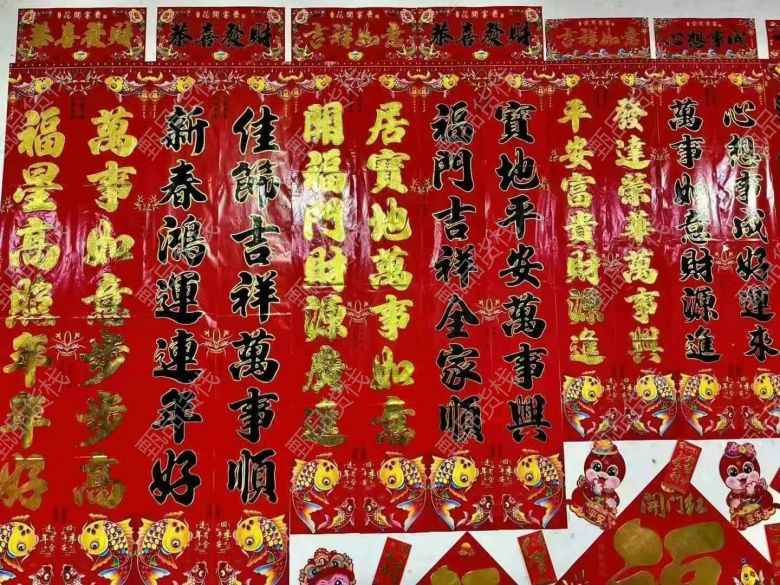 花開富貴
恭喜發財
花開富貴
恭喜發財
花開富貴
吉祥如意
花開富貴
恭喜發財
吉祥如意
心想事成
萬事如意步步高
福星高照年年好
佳節吉祥萬事順
新春鴻運連年好
居寶地萬事如意
開福門財源廣進
寶地平安萬事興
福門吉祥全家順
發達榮華萬事興
平安富貴財源進
心想事成好運來
萬事如意財源進
開門紅
福